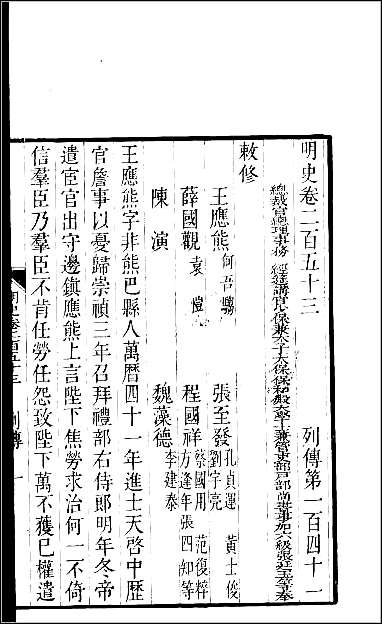 明史卷二百五十三　列傳第一百四十一
總裁官總理事務　經筵講官少保兼太子太保保和殿大學士兼管吏部戶部尚書事加六級張廷玉等奉
敕修
王應熊何吾騶　張至發孔貞運　黃士俊　劉宇亮
薛國觀袁愷　程國祥蔡國用　范復粹　方逢年　張四知等
陳演　魏藻德李建泰
王應熊字非熊巴縣人萬曆四十一年進士天啓中歷
官詹事以憂歸崇禎三年召拜禮部右侍郎明年冬帝
遣宦官出守邊鎮應熊上言陛下焦勞求治何一不倚
信羣臣乃羣臣不肯任勞任怨致陛下萬不獲已權遣
明史卷二百五十三　列傳　一